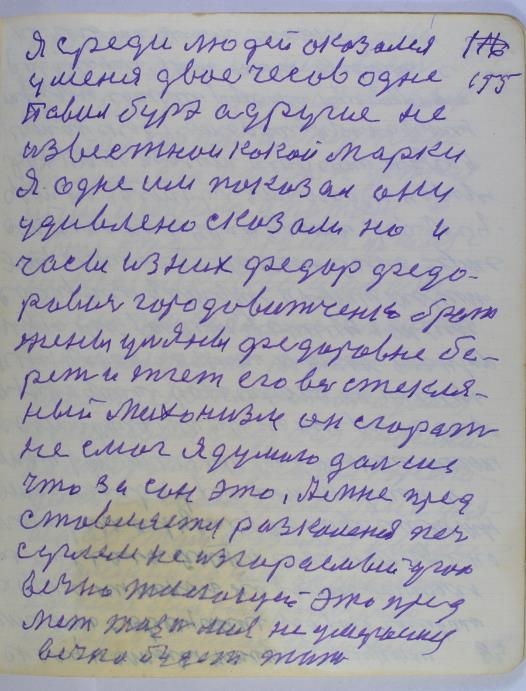 Я среди людей оказался 176
у меня двое чесов одне 155
павил бурэ а другие не
известной кокой марки
Я одне им показал они
удивлено сказали но и
часы из них федор федо-
рович городовитченко брат
жены ульяны федоровне бе-
рет и жгет его весь стекля-
ный михонизм он сгорат
не смог я думою
что за сон это, А мне пред
ставляетя разколеная печ
с углем не изгораемый угол
вечно это пред
мет не умераю
вечно будет жит